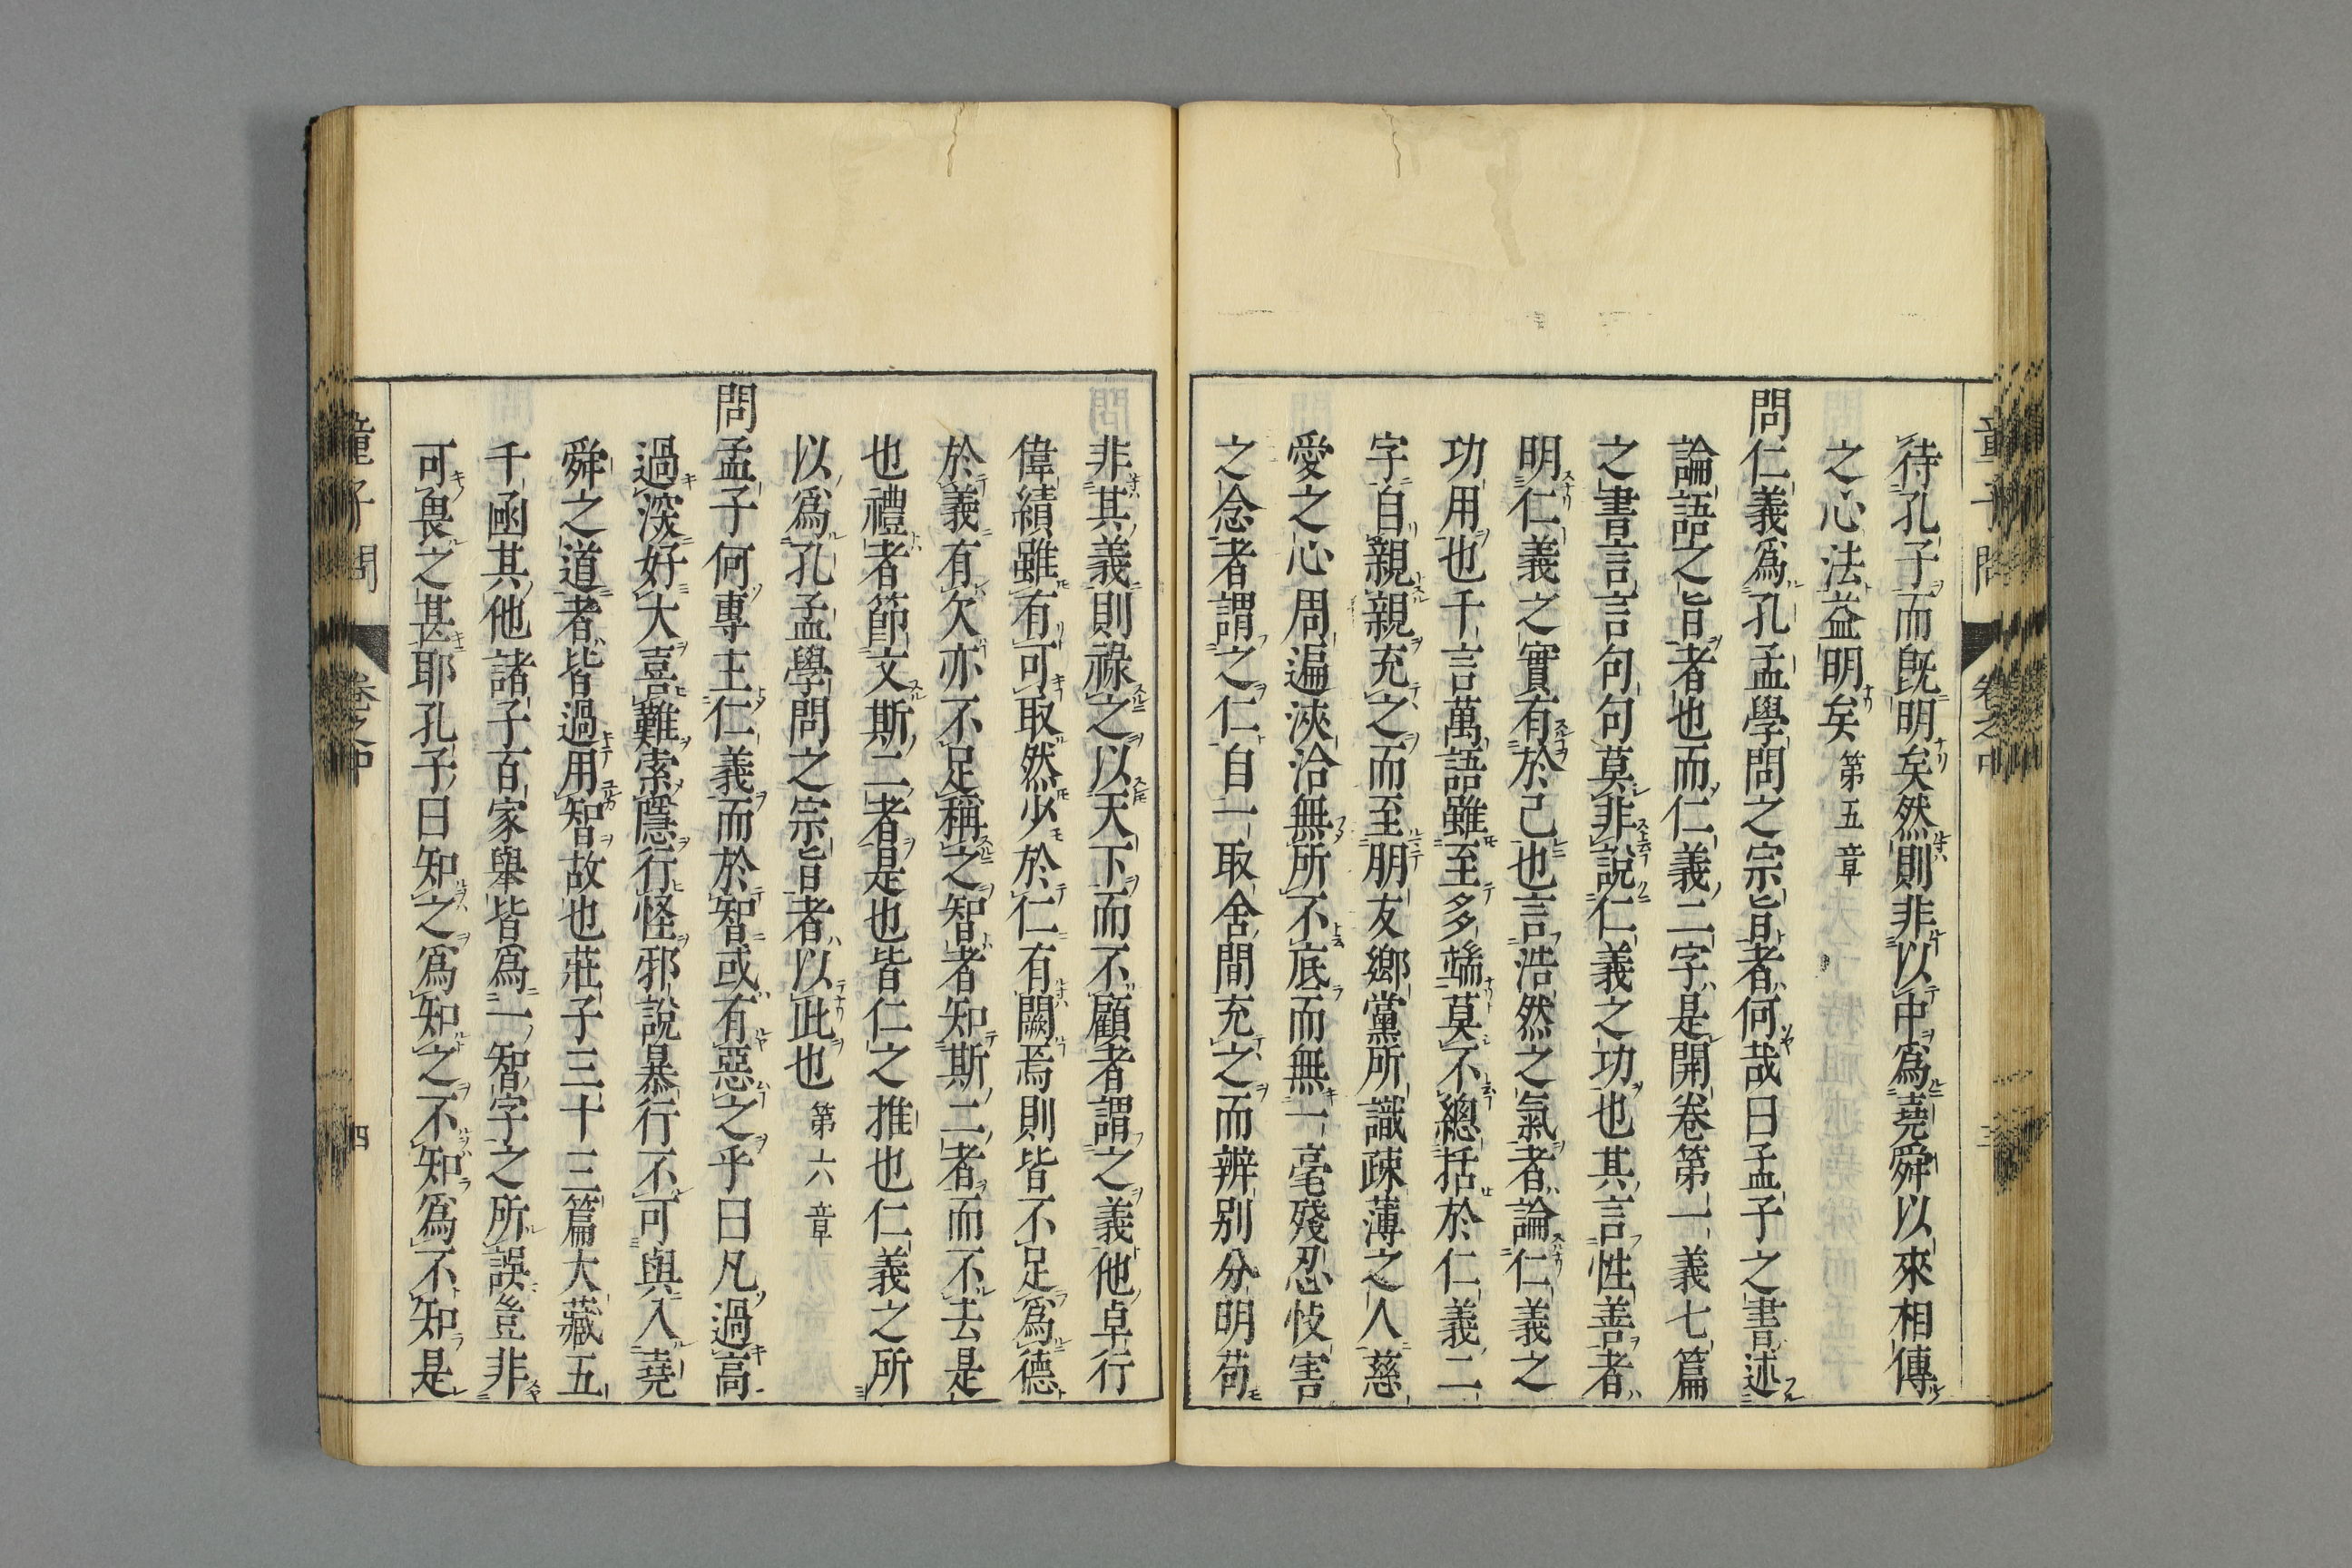 待孔子而既明矣然則非以中爲堯舜以來相傳
之心法益明矣 第五章
問仁義爲孔孟學問之宗旨者何哉曰孟子之書述
論語之旨者也而仁義二字是開卷第一義七篇
之書言言句句莫非說仁義之功也其言性善者
明仁義之實有於己也言浩然之氣者論仁義之
功用也千言萬語雖至多端莫不總括於仁義二
字自親親充之而至朋友鄉黨所識疎薄之人慈
愛之心周遍浹洽無所不底而無一毫殘忍忮害
之念者謂之仁自一取舍間充之而辨別分明苟
非其義則祿之以天下而不顧者謂之義他卓行
偉績雖有可取然少於仁有闕焉則皆不足爲德
於義有欠亦不足稱之智者知斯二者而不去是
也禮者節文斯二者是也皆仁之推也仁義之所
以爲孔孟學問之宗旨者以此也 第六章
問孟子何專主仁義而於智或有惡之乎曰凡過高
過深好大喜難索隱行怪邪說暴行不可與入堯
舜之道者皆過用智故也莊子三十三篇大藏五
千函其他諸子百家舉皆爲一智字之所誤豈非
可畏之甚耶孔子曰知之爲知之不知爲不知是
童子問 卷之中 四